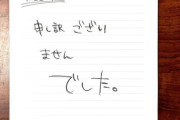 申し訳ござい
ません
でした。